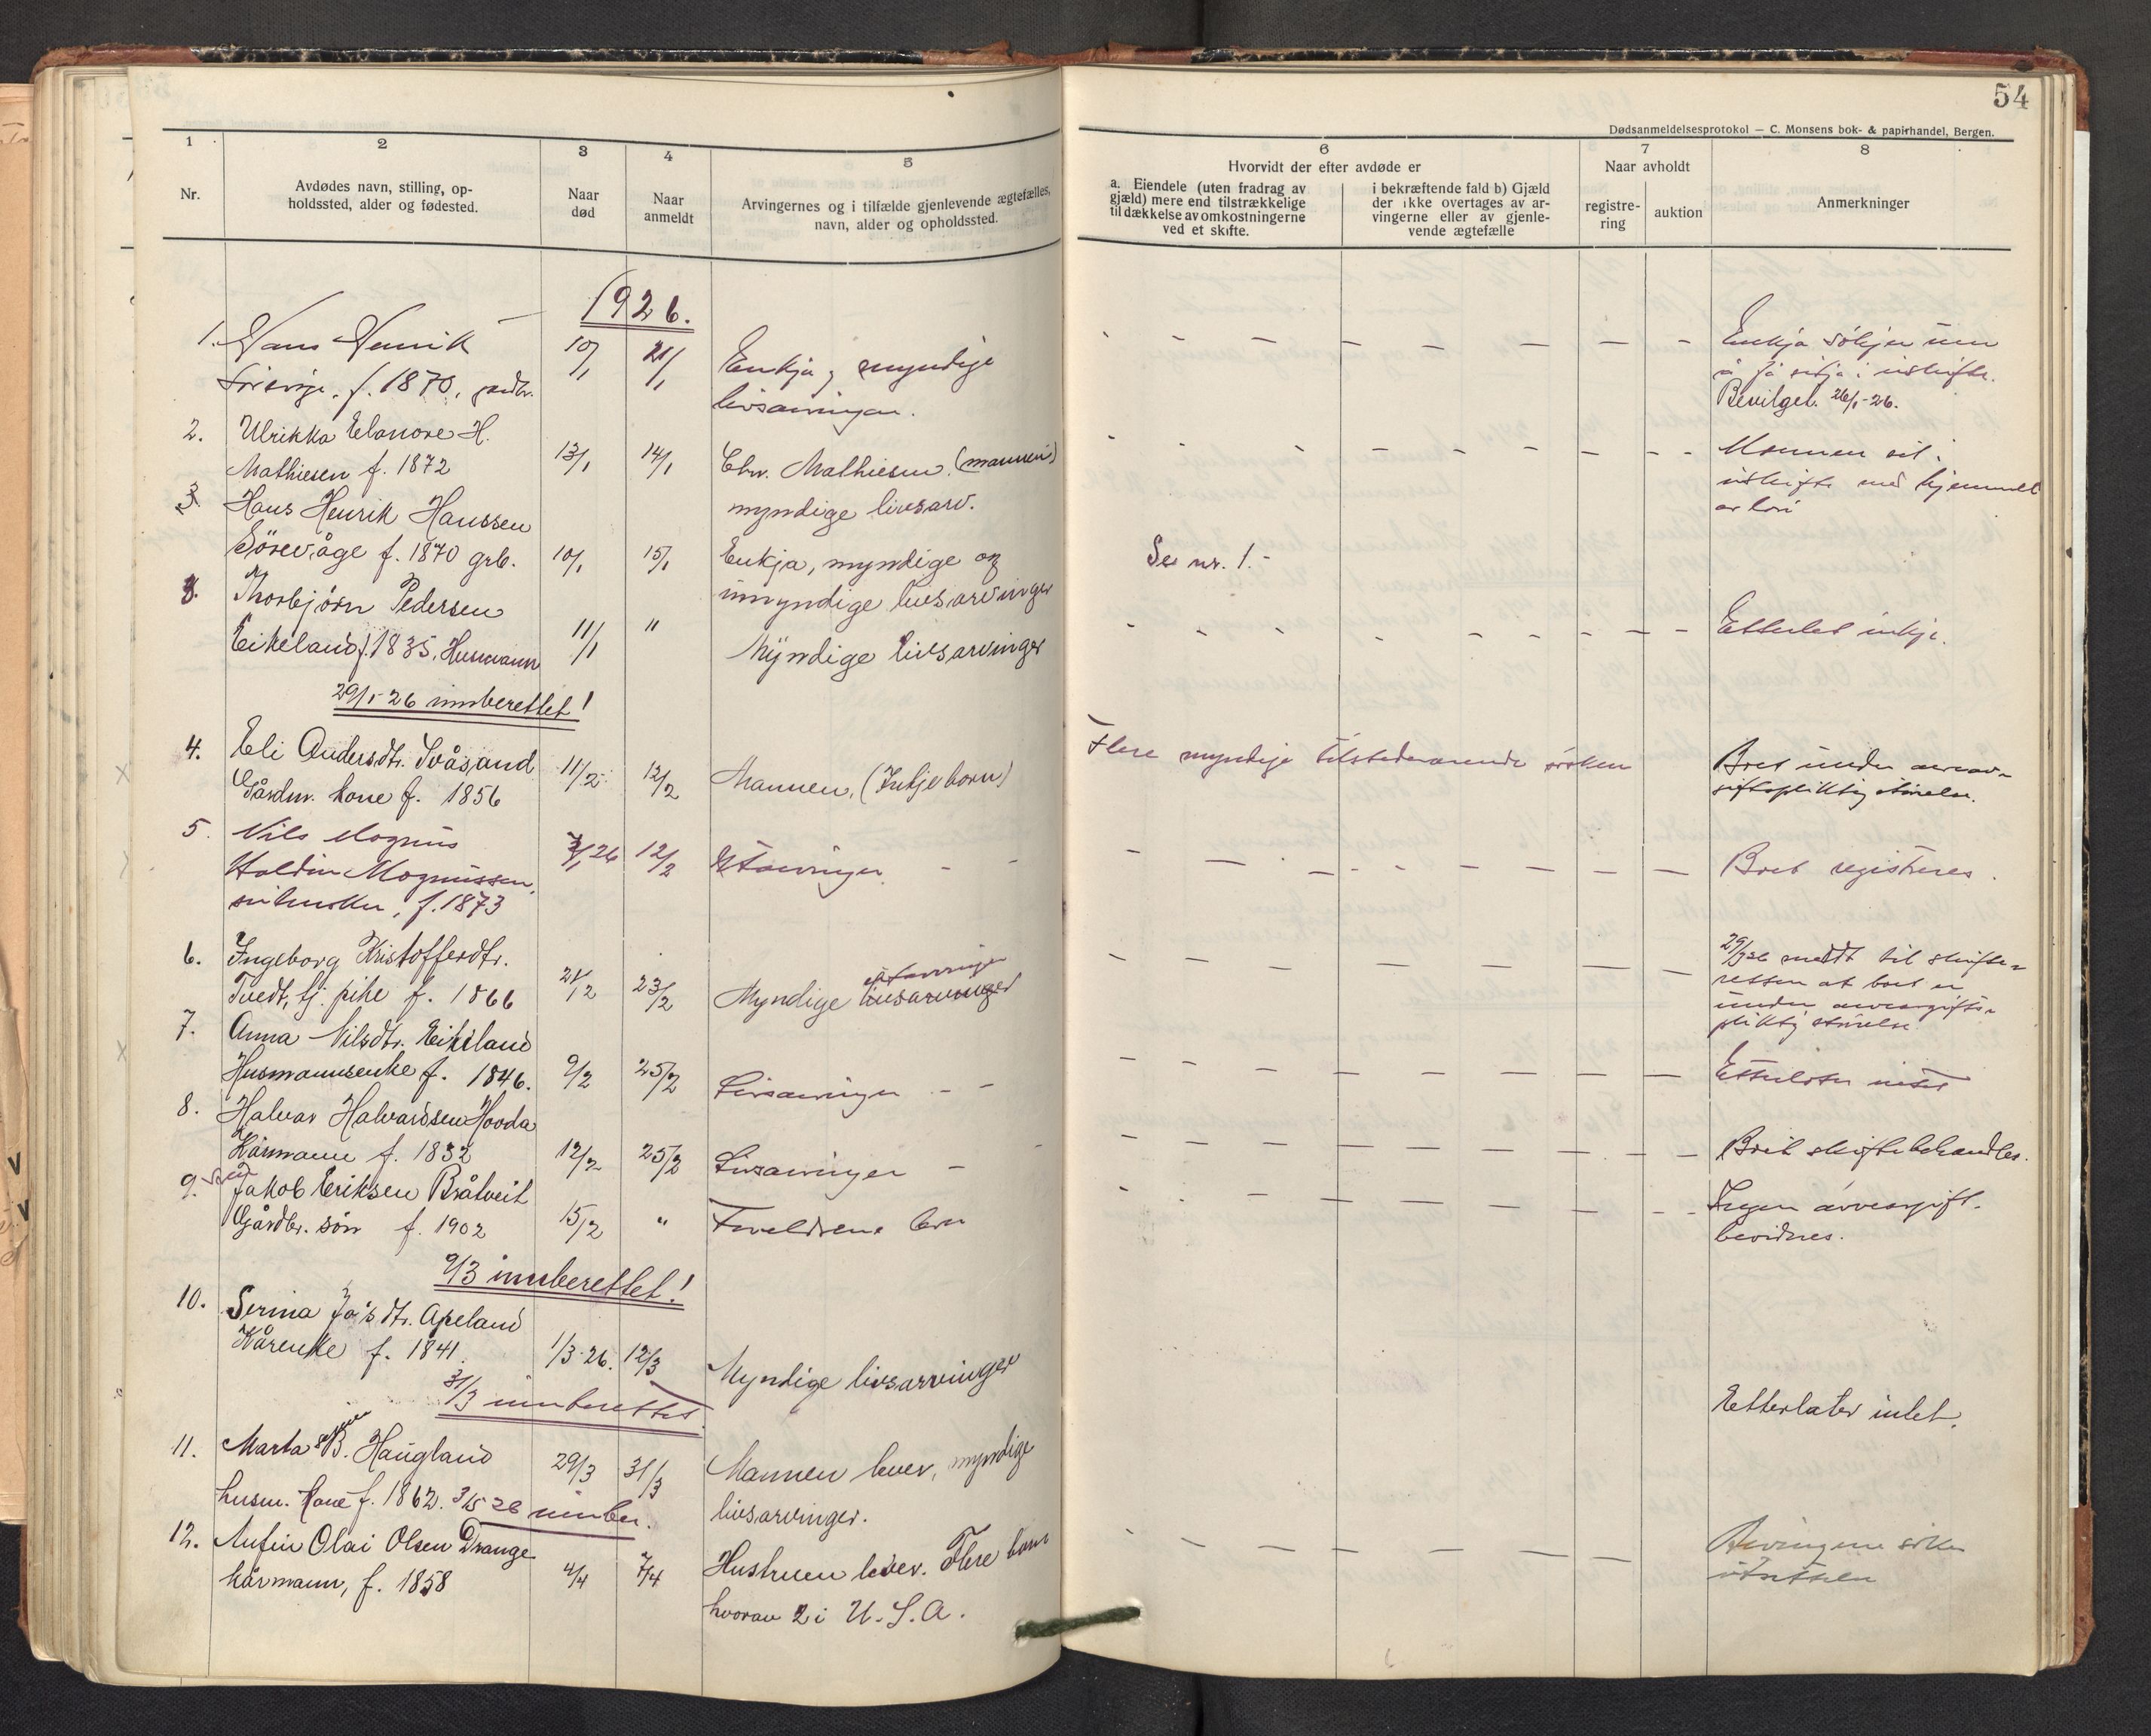 54
Dødsanmeldelsesprotokol — C. Monsens bok- & papirhandel, Bergen.
1
2
3
4
5
6
7
8
Nr.
Avdødes navn, stilling, op-
holdssted, alder og fødested.
Naar
død
Naar
anmeldt
Arvingernes og i tilfælde gjenlevende ægtefælles,
navn, alder og opholdssted.
Hvorvidt der efter avdøde er
a. Eiendele (uten fradrag av
gjæld) mere end tilstrækkelige
til dækkelse av omkostningerne
ved et skifte.
i bekræftende fald b) Gjæld
der ikke overtages av ar-
vingerne eller av gjenle-
vende ægtefælle
Naar avholdt
registre-
ring
auktion
Anmerkninger
1926.
1. Hans Henrik
f. 1870, 10/1 21/1 Enkja, myndige
livsarvingar.
Enkja søkjer um
å få sitja i uskifte.
Bevilget 26/1-26.
2. Ulrikka Elanore H.
Mathiesen f. 1872 13/1 14/1 Chr. Mathiesen (mannen)
myndige livsarv.
Mannen sit i
uskifte med hjemmel
av lov
3. Hans Henrik Hanssen
Sørevåge f. 1870 grb. 10/1 15/1 Enkja, myndige og
umyndige livsarvinger
Se nr. 1.-
3. Thorbjørn Pedersen
Eikeland f. 1835, Husmann 11/1 " Myndige livsarvinger
Etterlet inkje.
29/1-26 innberettet!
4. Eli Andersdtr. Svåsand
Gårdm. kone f. 1856 11/2 12/2 Mannen, (Inkje born)
Flere myndige tilstedeværende søsken
Boet under arveav-
giftspliktig størrelse.
5. Nils Magnus
Haldin Magnussen,
f. 1873 26 12/2 Utarvinger
Boet registreres.
6. Ingeborg Kristofferdtr.
Tvedt, tj. pike f. 1866 21/2 23/2 Myndige livsarvinger
utarvinger
meldt til skifte-
retten at boet er
under arveavgifts-
pliktig størrelse
7. Anna Nilsdtr. Eikeland
Husmannsenke f. 1846. 9/2 25/2 Livsarvinger
Etterlater intet
8. Halvar Halvardsen Hovda
Kårmann f. 1832 12/2 25/2 Livsarvinger
Boet skiftebehandles.
9. Jakob Eriksen Bråtveit
Gårdbr. søn f. 1902 15/2 " Foreldrene lever
Ingen arveavgift.
9/3 innberettet!
10. Serina Jo's dtr. Apeland
Kårenke f. 1841. 1/3-26. 12/3 Myndige livsarvinger
Etterlater intet.
31/3 innberettet.
11. Marta B. Haugland
husm. kone f. 1862. 29/3 31/3 Mannen lever, myndige
livsarvinger.
3/5 26 innber.
12. Anfin Olai Olsen Drange
kårmann, f. 1858 4/4 7/4 Hustruen lever. Flere barn
hvorav 2 i U.S.A.
Arvingene